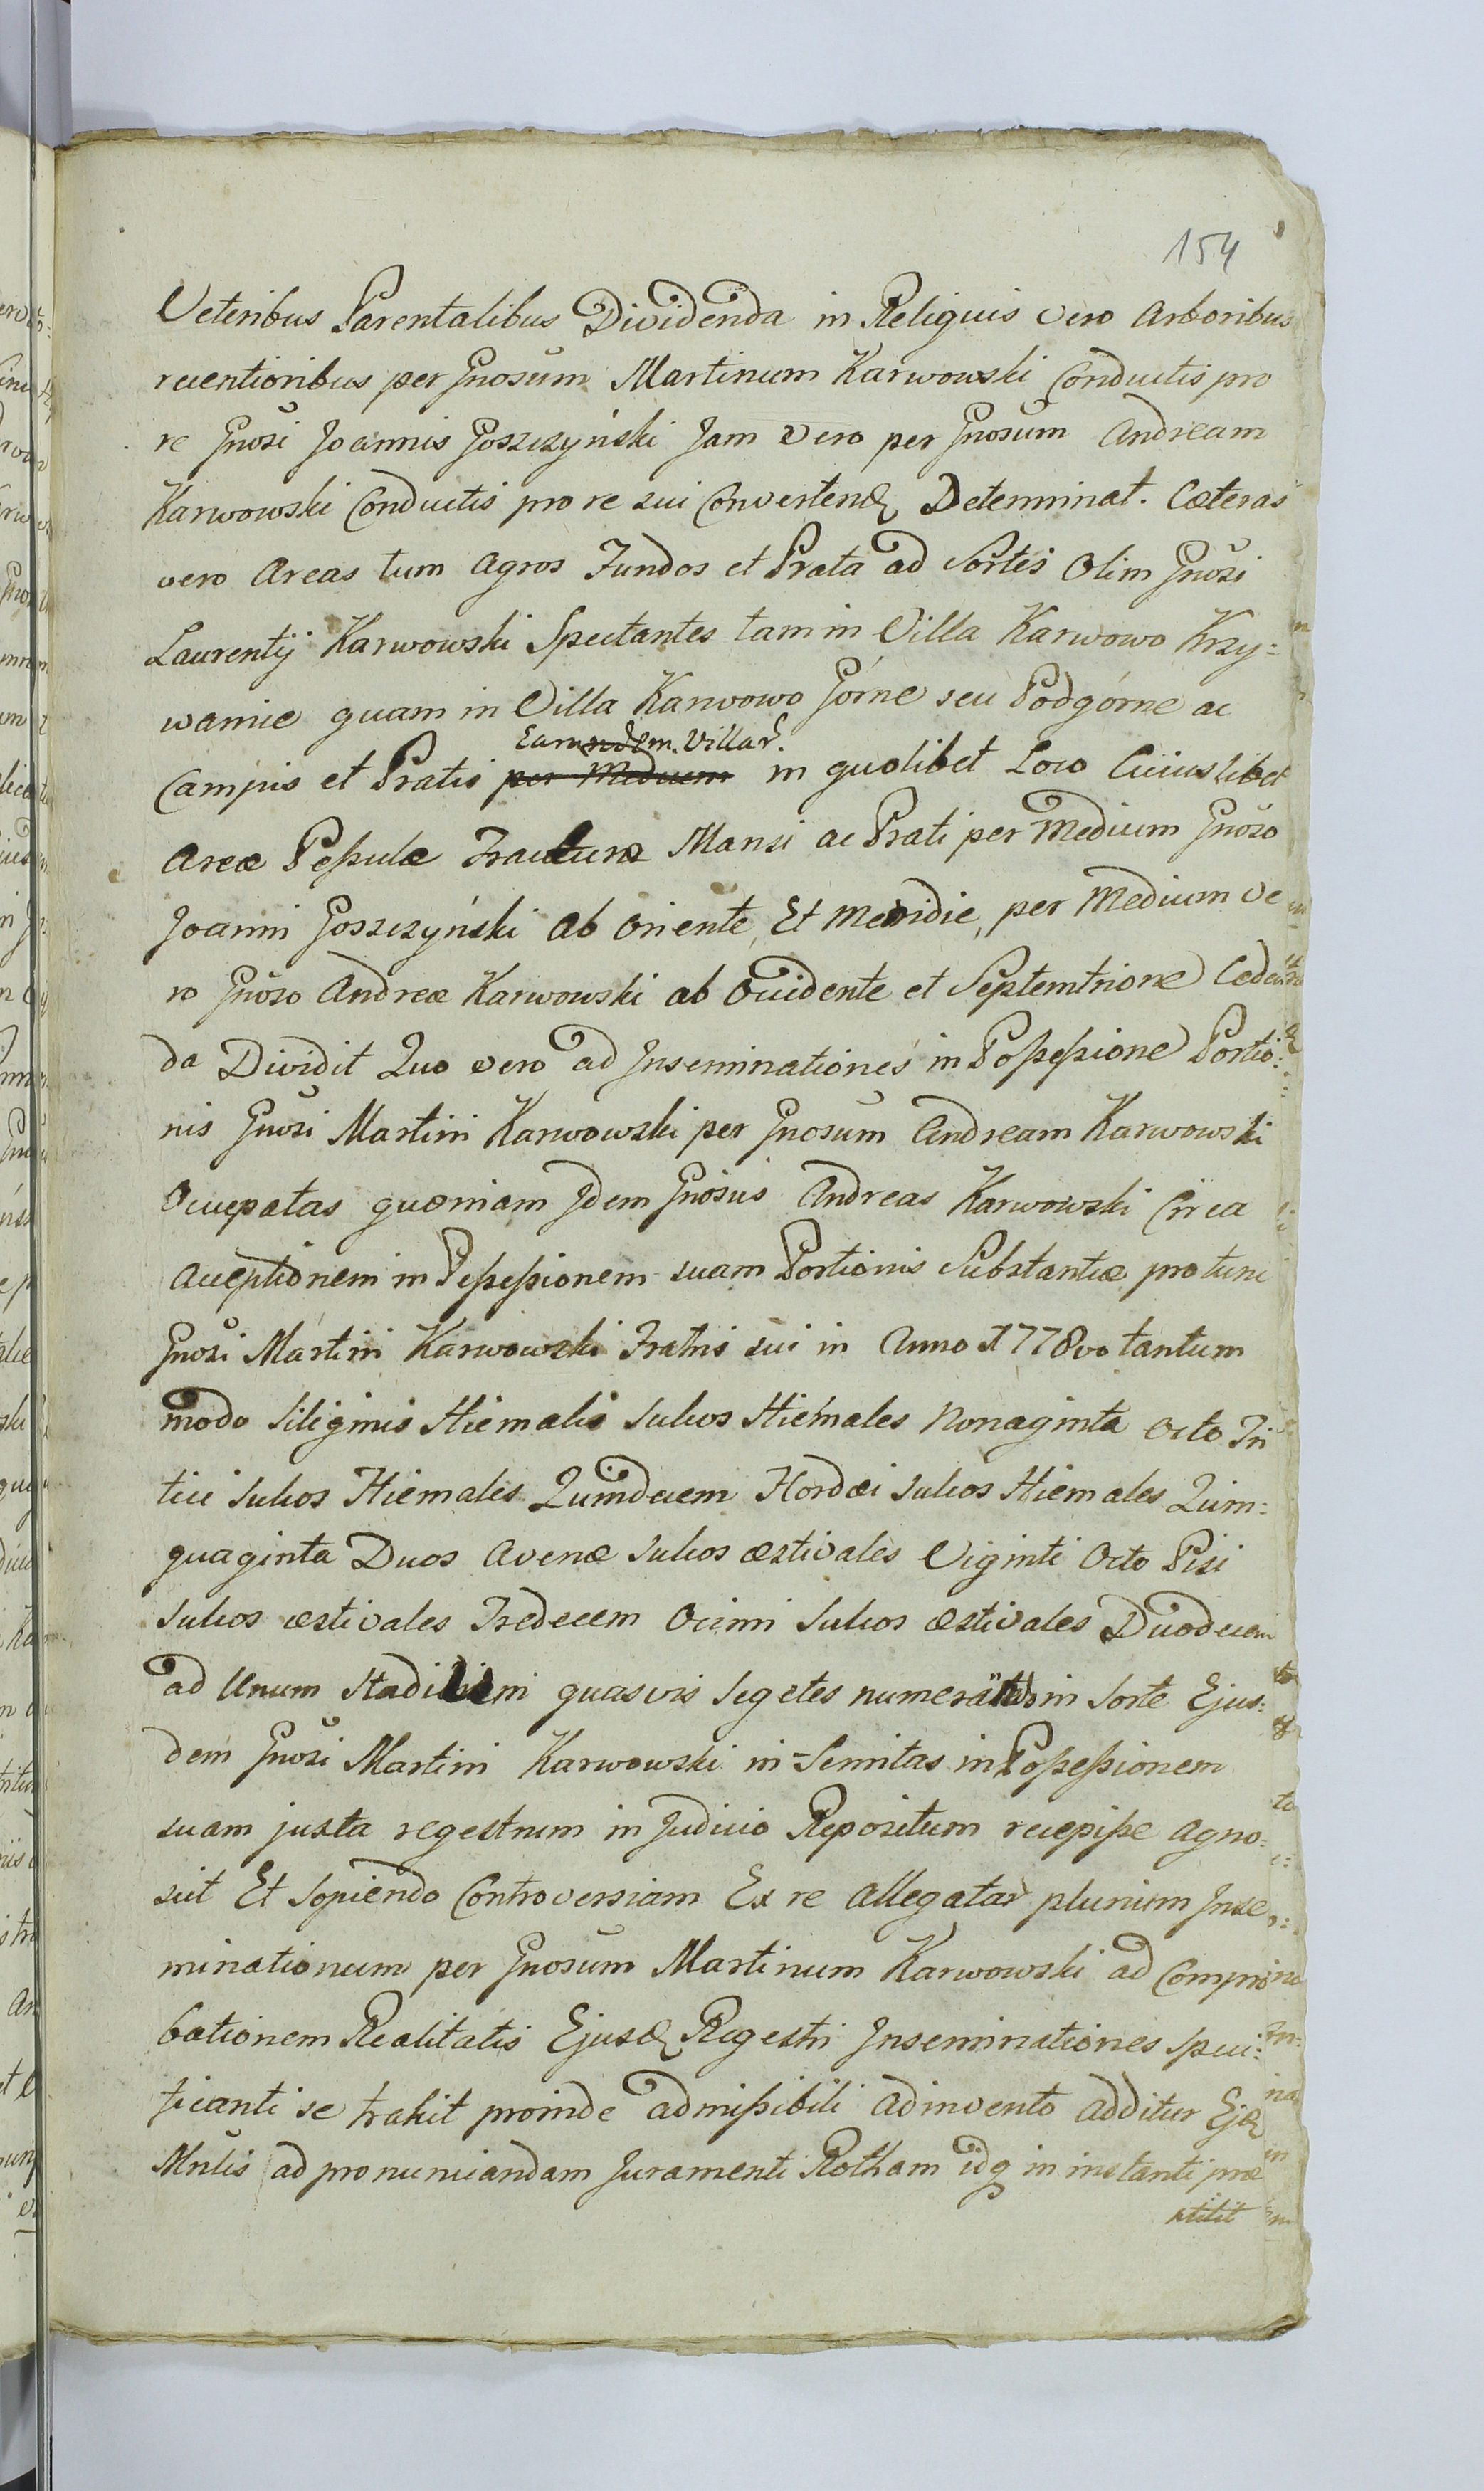 154
Veteribus Parentalibus Dividenda in Reliquis vero Arboribus
recentioribus per Gnosum Martinum Karwowski Conductis pro
re Gnosi Joannis Goszczyński Jam Vero per Gnosum Andream
Karwowski Conductis pro re sui Convertend Determinat. Cæteras
vero Areas tum Agros Fundos et Prata ad Sortes Olim Gnosi
Laurentij Karwowski Spectantes tam in Villa Karwowo Krzy=
wamie quam in Villa Karwowo Górne seu Podgórne ac
Earundem Villar.
Campis et Pratis per Medium in quolibet Loco Cuiuslibet
Areæ Peßulæ Fracturæ Mansi ac Prati per Medium Gnoso
Joanni Goszczyński ab Oriente Et Meridie, per Medium Ve
ro Gnoso Andreæ Karwowski ab Occidente et Septemtrione Ceden
da Dividit Quo vero ad Inseminationes in Poßeßione Portio=
nis Gnosi Martini Karwowski per Gnosum Andream Karwowski
Occupatas quoniam Idem Gnosus Andreas Karwowski Circa
Acceptionem in Poßeßionem suam Portionis Substantiæ pro tunc
Gnosi Martini Karwowski Fratris sui in Anno 1778vo tantum
modo Siliginis Hiemalis Sulcos Hiemales Nonaginta Octo Tri
tici Sulcos Hiemales Quindecem Hordæi Sulcos Hiemales Quin=
quaginta Duos Avenæ Sulcos æstivales Viginti Octo Pisi
Sulcos æstivales Tredecem Ocimi Sulcos æstivales Duodecem
ad Unum Stadium quasvis Segetes numerātdo in Sorte Ejus=
dem Gnosi Martini Karwowski in-Semitas in Poßeßionem
suam juxta regestrum in Judicio Repositum recepiße agno=
scit Et Sopiendo Controversiam Ex re Allegatar plurium Inse
minationum per Gnosum Martinum Karwowski ad Compro
bationem Realitatis Ejusd Regestri Inseminationes Speci=
ficanti se trahit proinde admißibili adinvento additur Ejd
Mnlis ad pronunciandam Juramenti Rotham idq in instanti præ
stitit